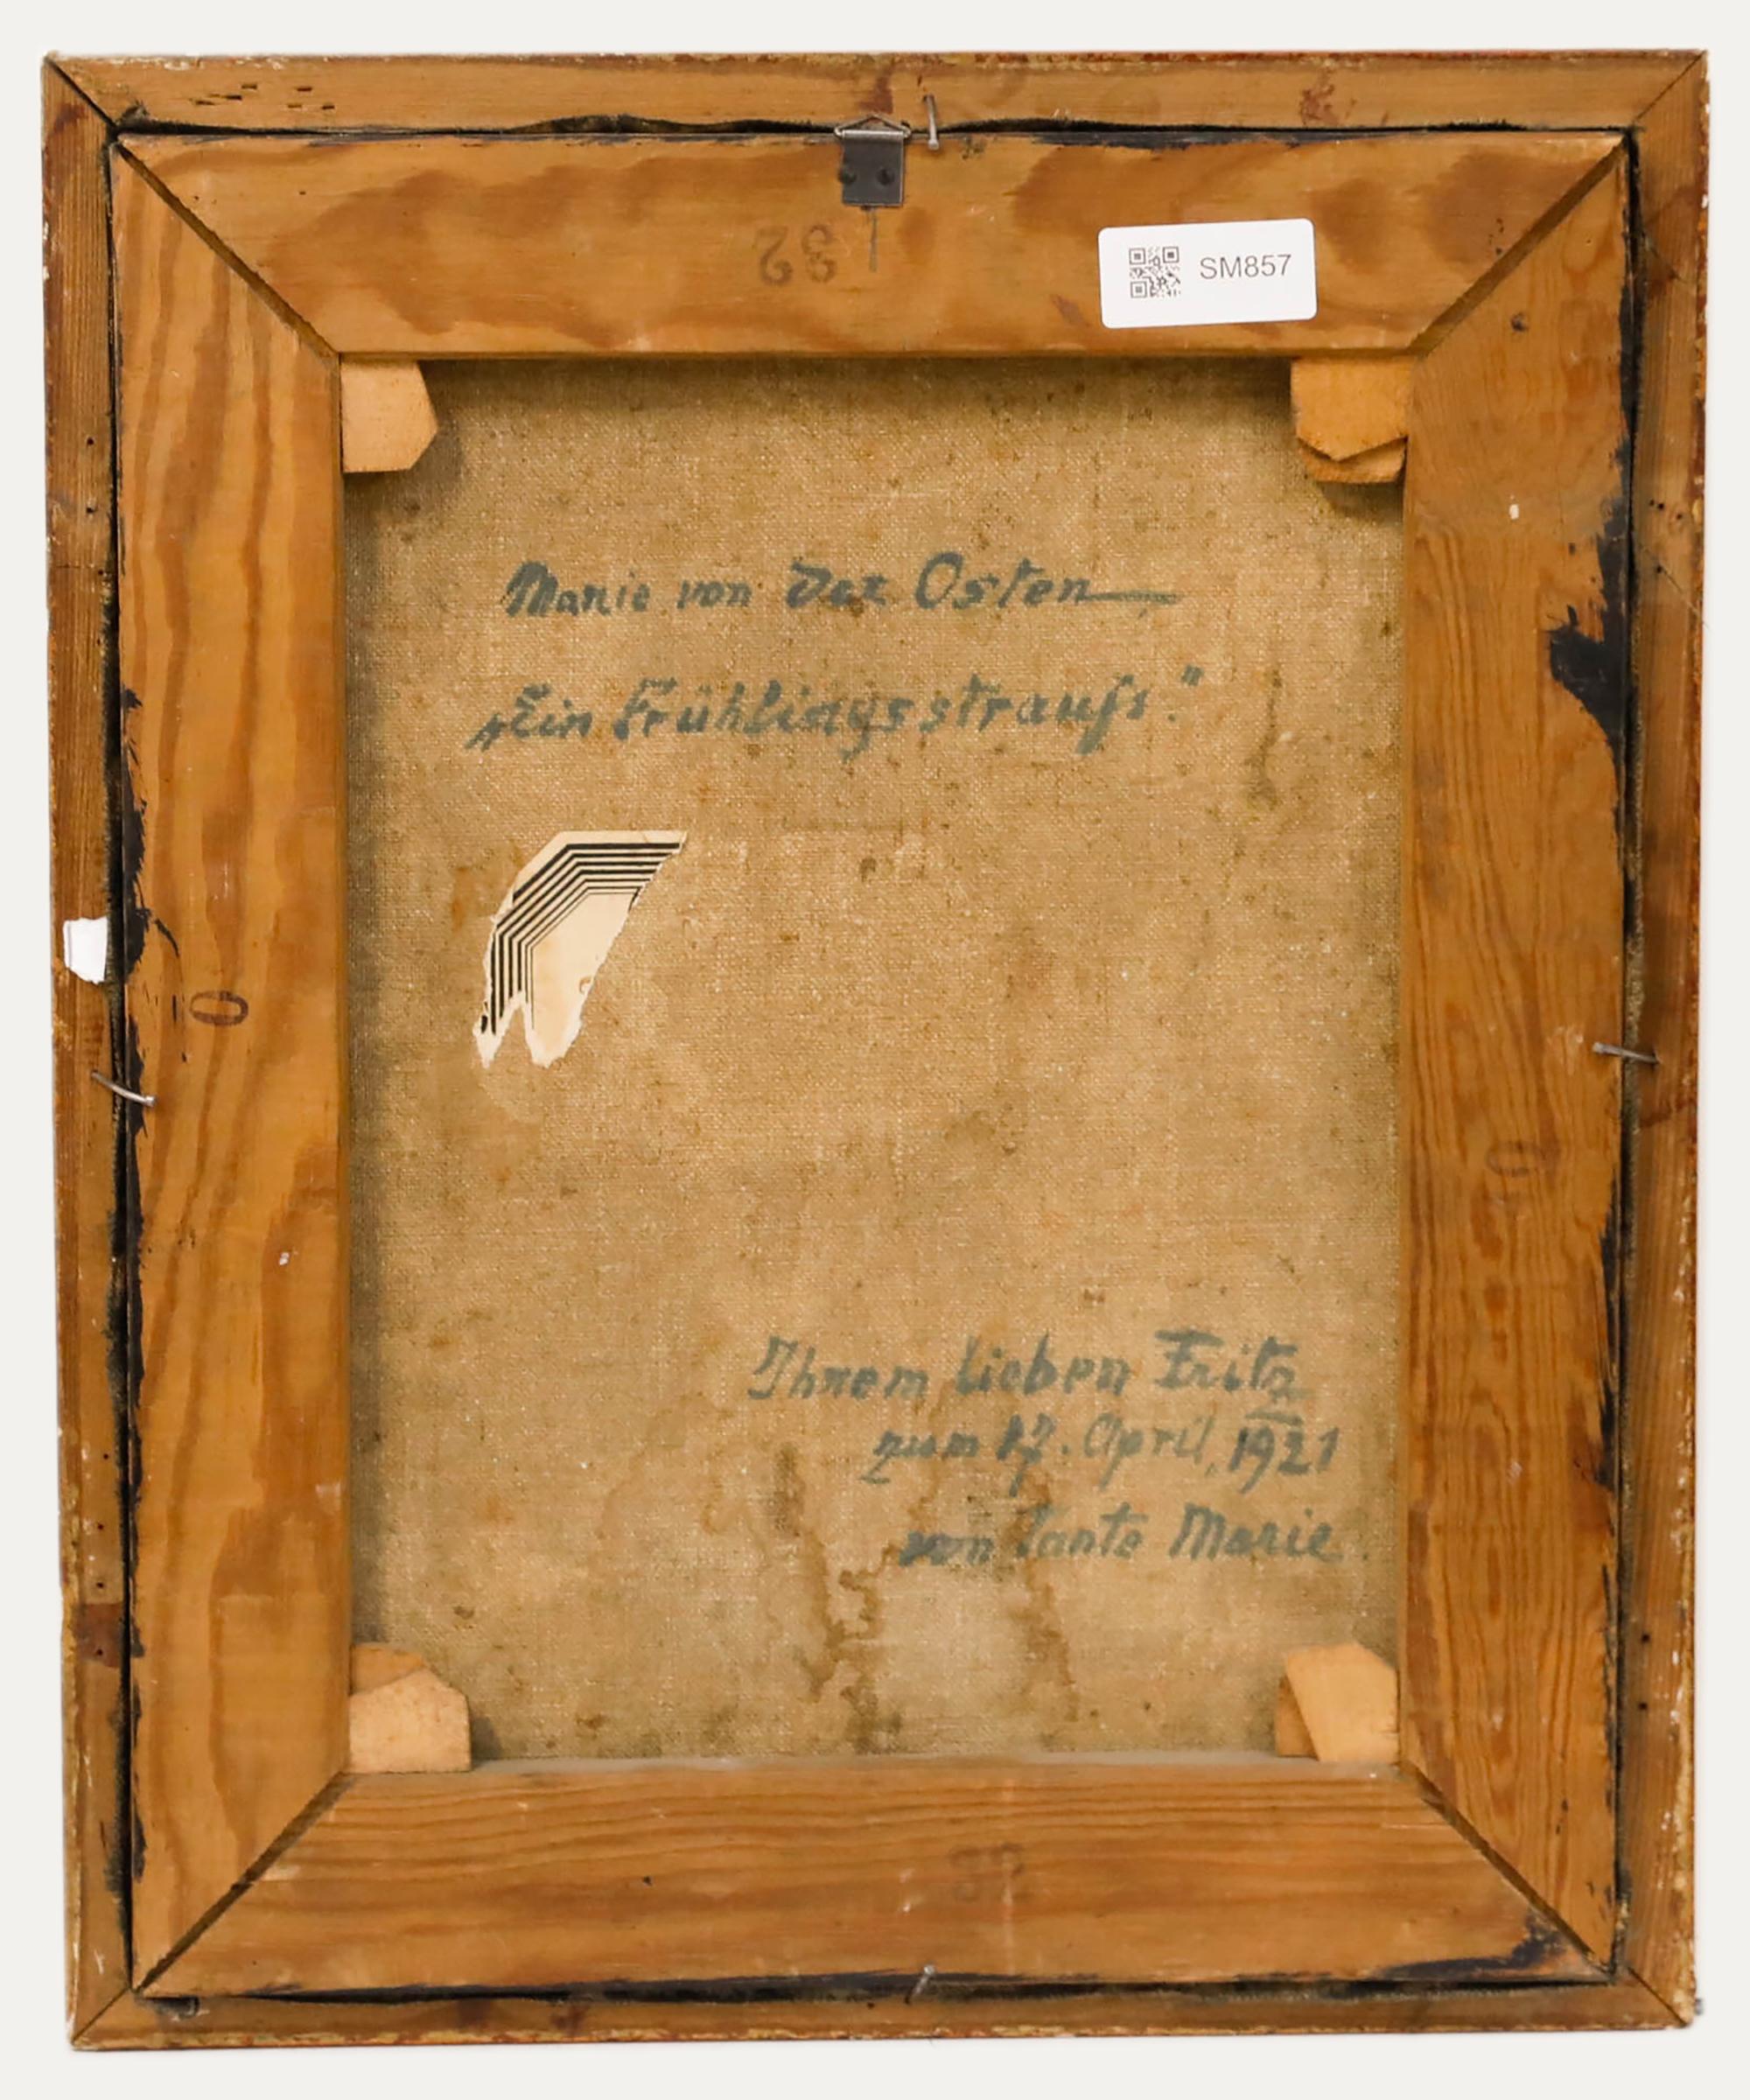 32
SM857
Marie von der Osten
„Ein Frühlingsstrauſs."
0
0
Ihrem lieben Fritz
zum 17. April, 1921
von Tante Marie
32